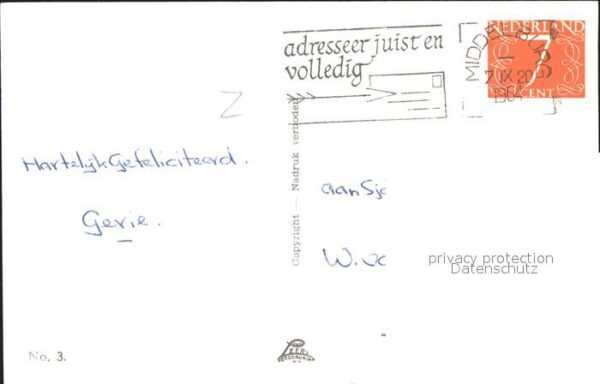 adresseer juist en
volledig
MIDDELBURG
7 IX 20
NEDERLAND
7
CENT
Hartelijk Gefeliciteerd.
Gerie.
Copyright — Nadruk verboden
aan Sj
W. v
privacy protection
Datenschutz
No. 3.